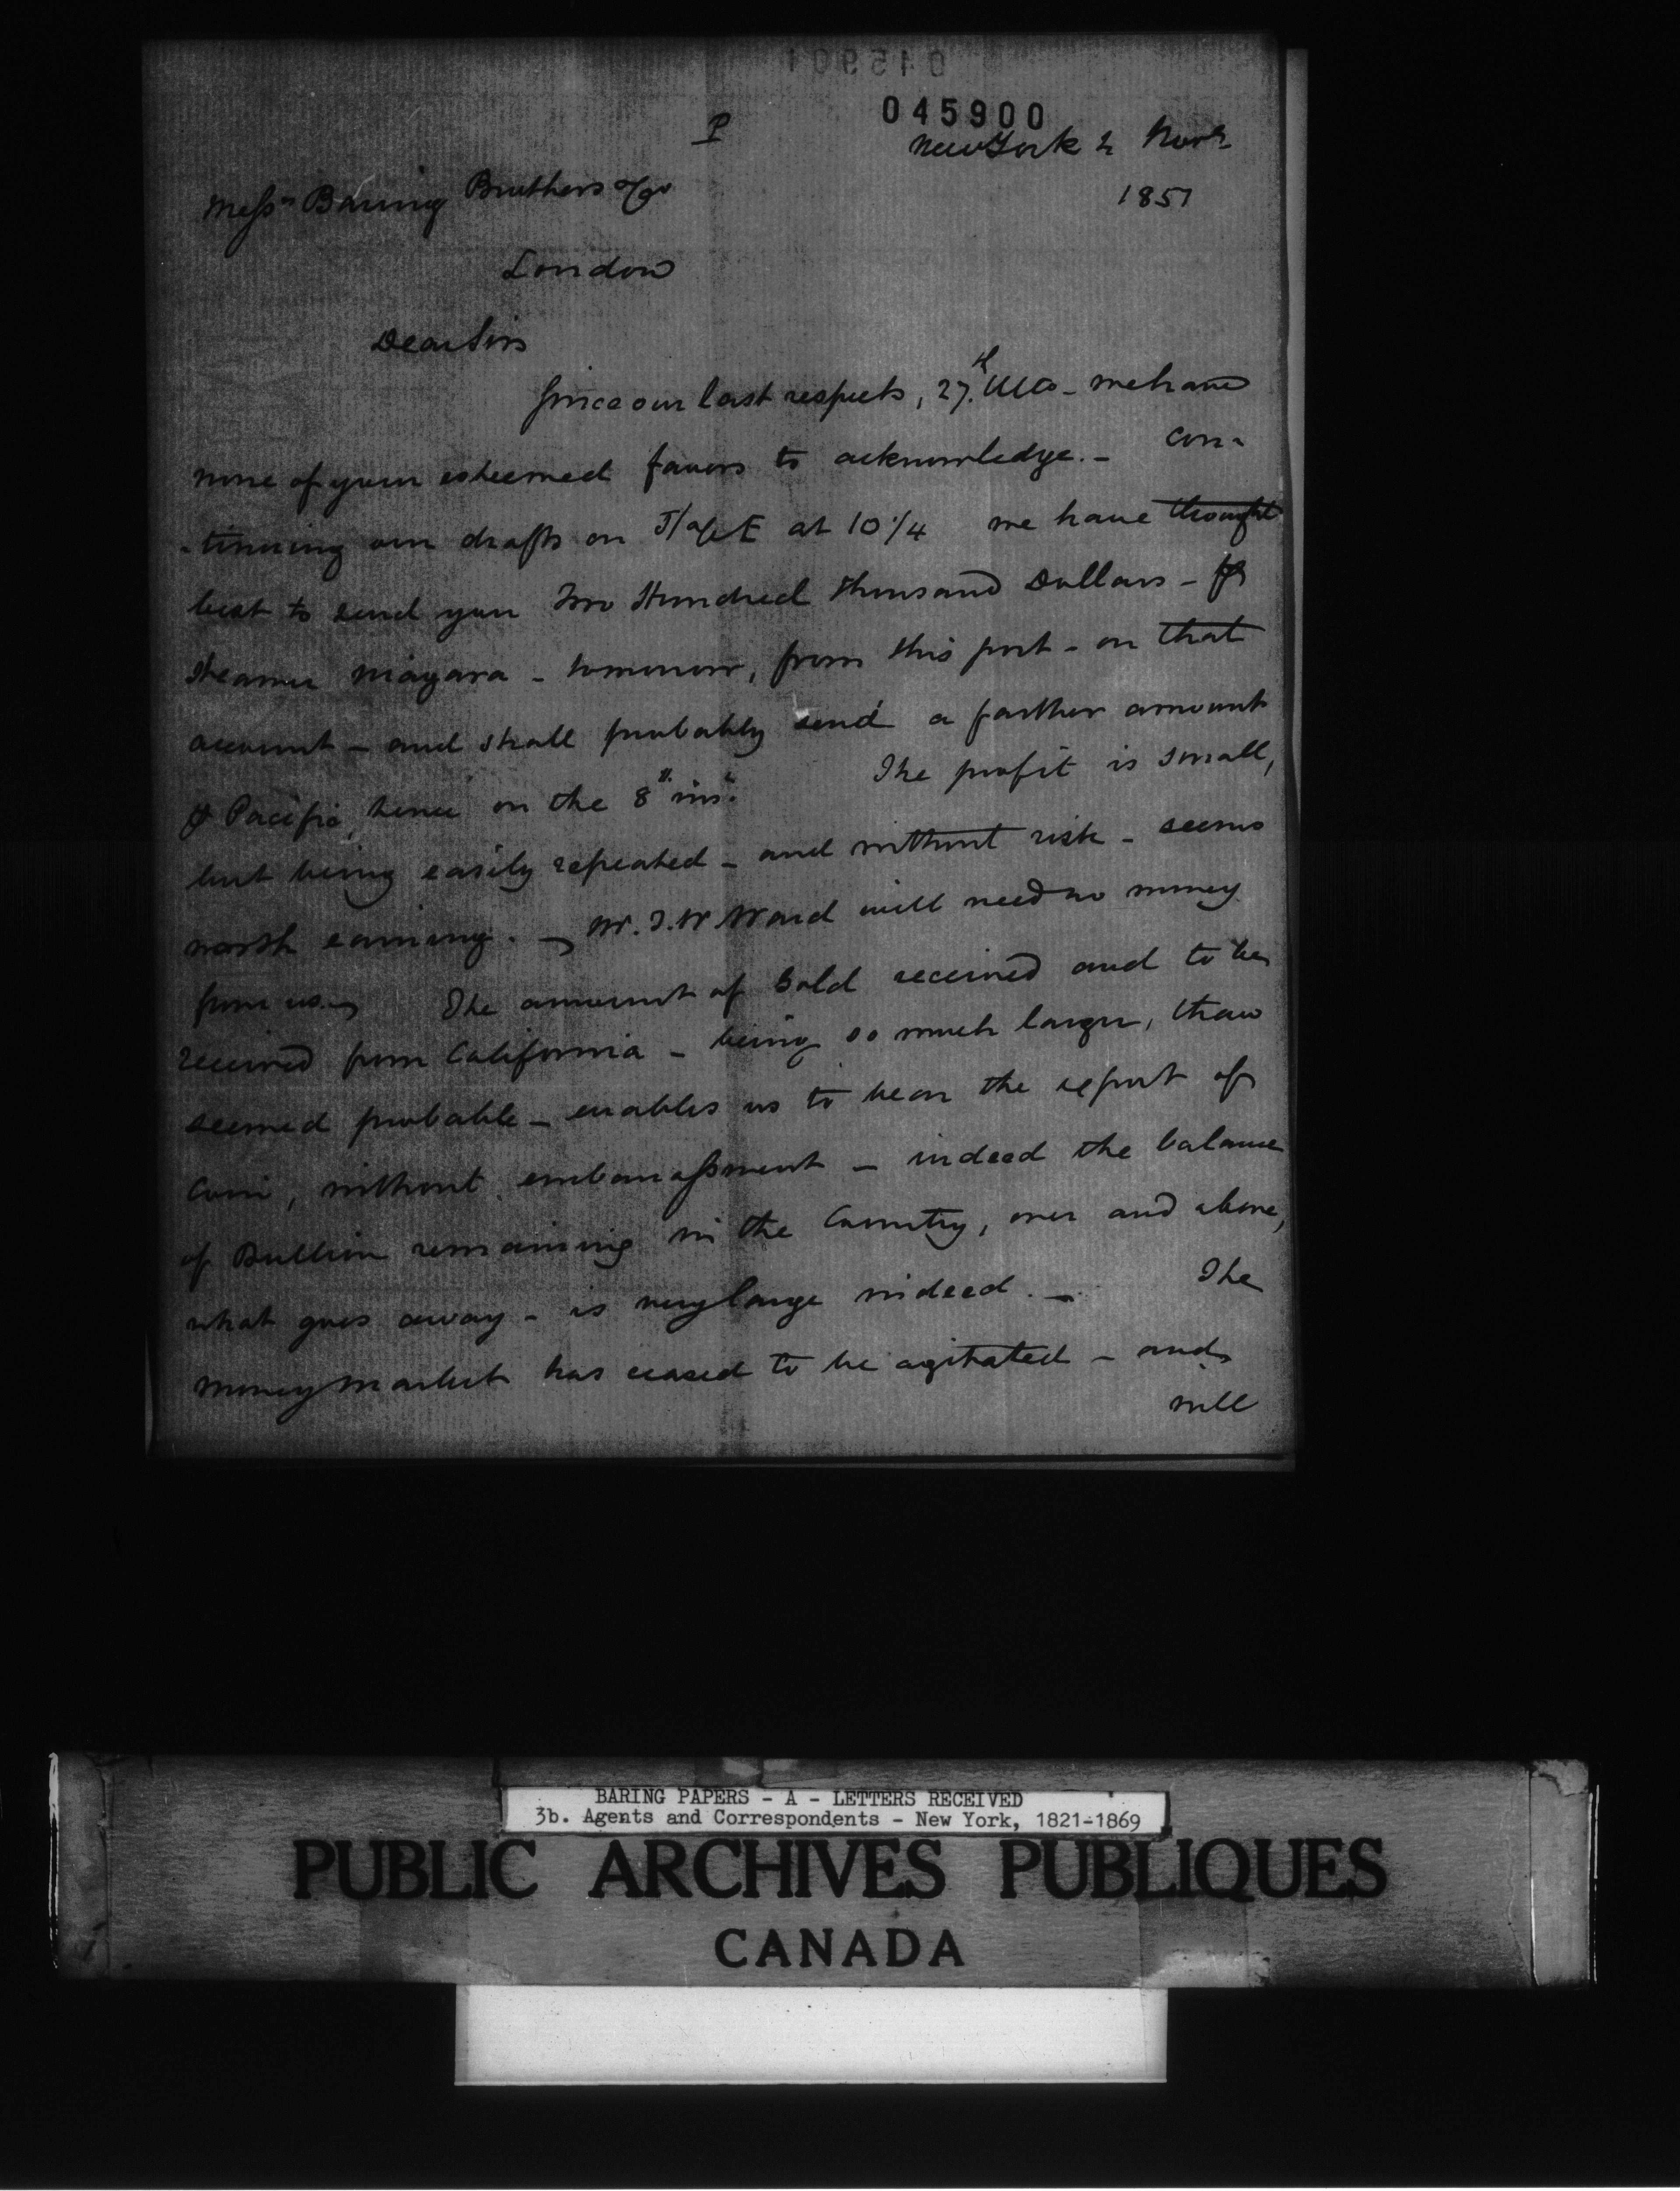 045901
045900
P
New York 4 Novr
1851
Messrs Baring Brothers & Co
London
Dear Sirs
Since our last respects, 27th Ulto - we have
none of your esteemed favors to acknowledge. - Con-
-tinuing our drafts on J/a/c E at 10 1/4 we have thought
best to send you Two Hundred Thousand Dollars - pr
Steamer Niagara - tomorrow, from this port - on that
account - and shall probably send a farther amount
pr Pacific, hence on the 8th inst. The profit is small,
but being easily repeated - and without risk - seems
worth earning. - Mr. T. W Ward will need no money
from us. - The amount of Gold received and to be
received from California - being so much larger, than
seemed probable - enables us to bear the export of
Coin, without embarrassment - indeed the balance
of Bullion remaining in the Country, over and above,
what goes away - is very large indeed. - The
money market has ceased to be agitated - and
will
BARING PAPERS - A - LETTERS RECEIVED
3b. Agents and Correspondents - New York, 1821-1869
PUBLIC ARCHIVES PUBLIQUES
CANADA